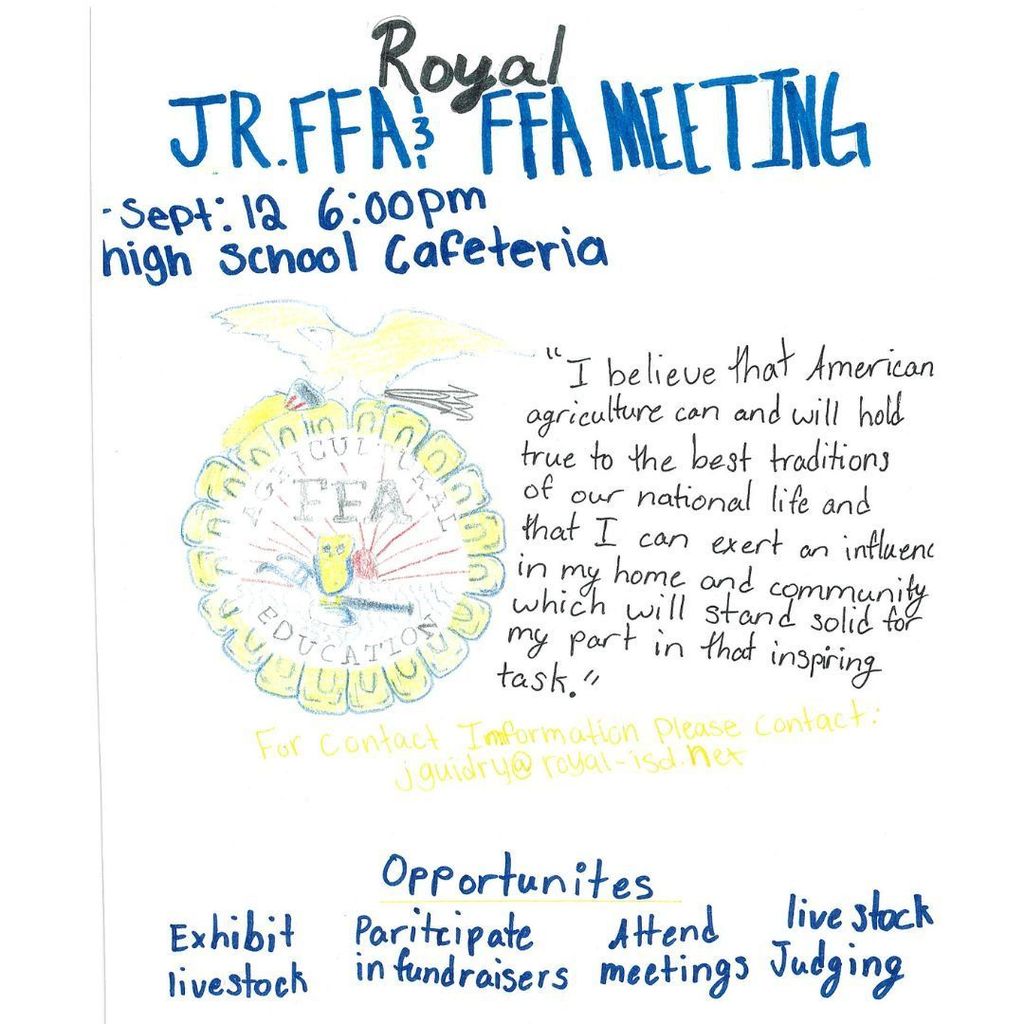 Royal
JR. FFA & FFA MEETING
-Sept: 12 6:00pm
high School Cafeteria
AGRICULTURAL
FFA
EDUCATION
"I believe that American
agriculture can and will hold
true to the best traditions
of our national life and
that I can exert an influenc
in my home and community
which will stand solid for
my part in that inspiring
task."
For Contact Imformation Please Contact:
jguidry@royal-isd.net
Opportunites
Exhibit
livestock
Pariteipate
in fundraisers
Attend
meetings
live stock
Judging